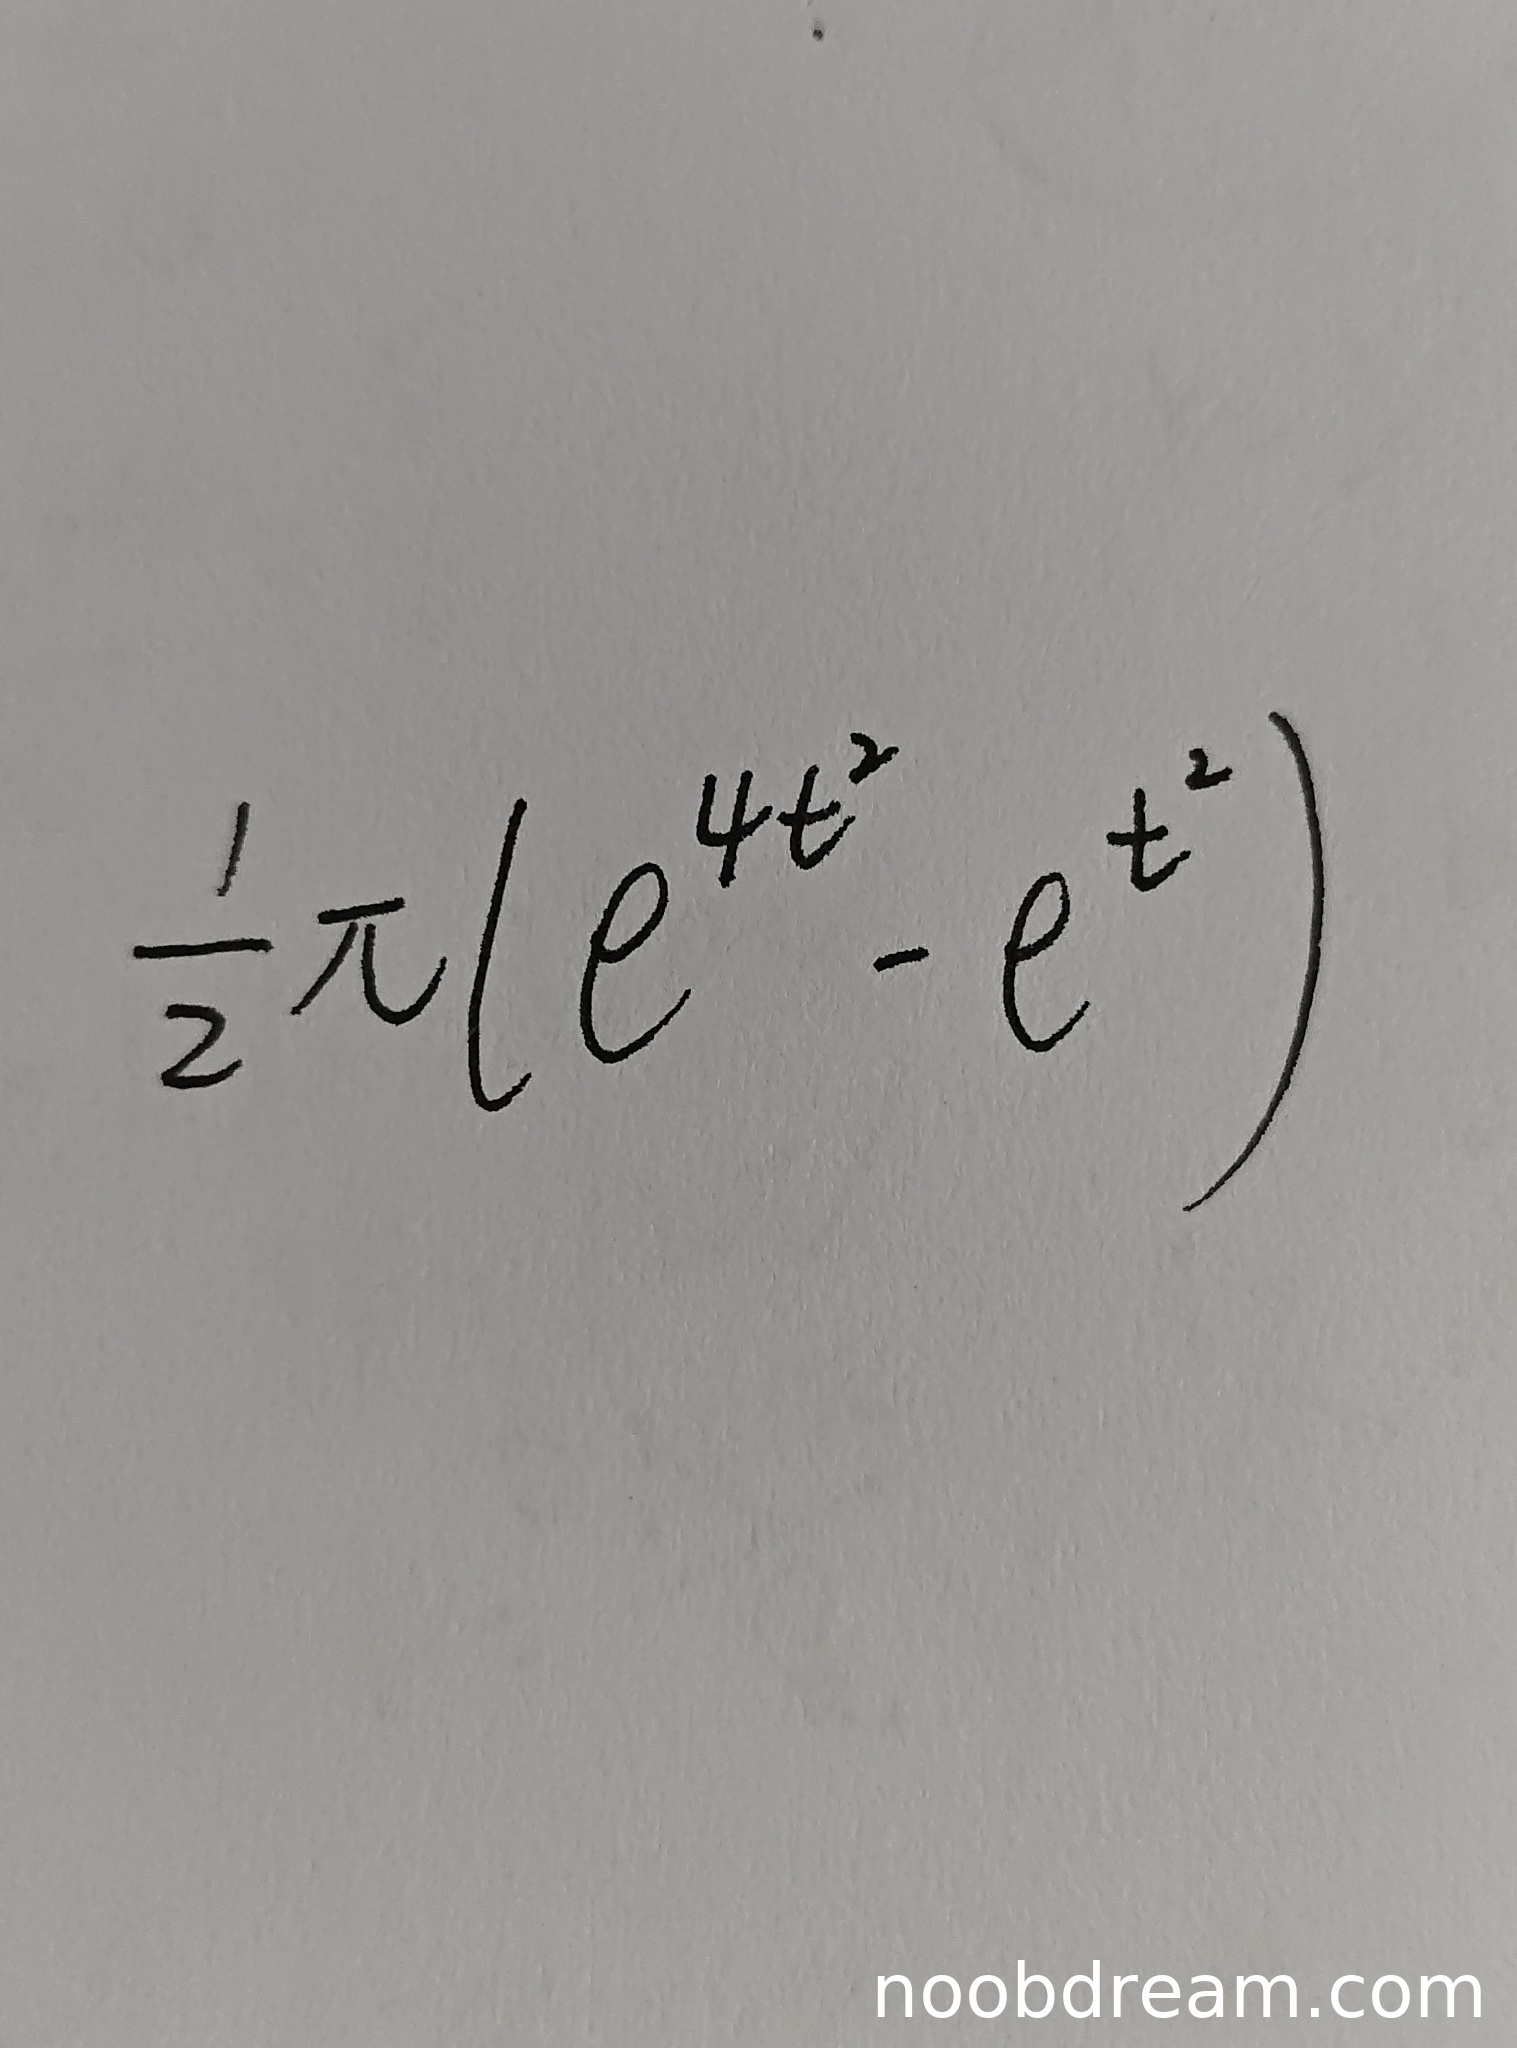 $\frac{1}{2}\pi\left(e^{4t^2} - e^{t^2}\right)$
noobdream.com